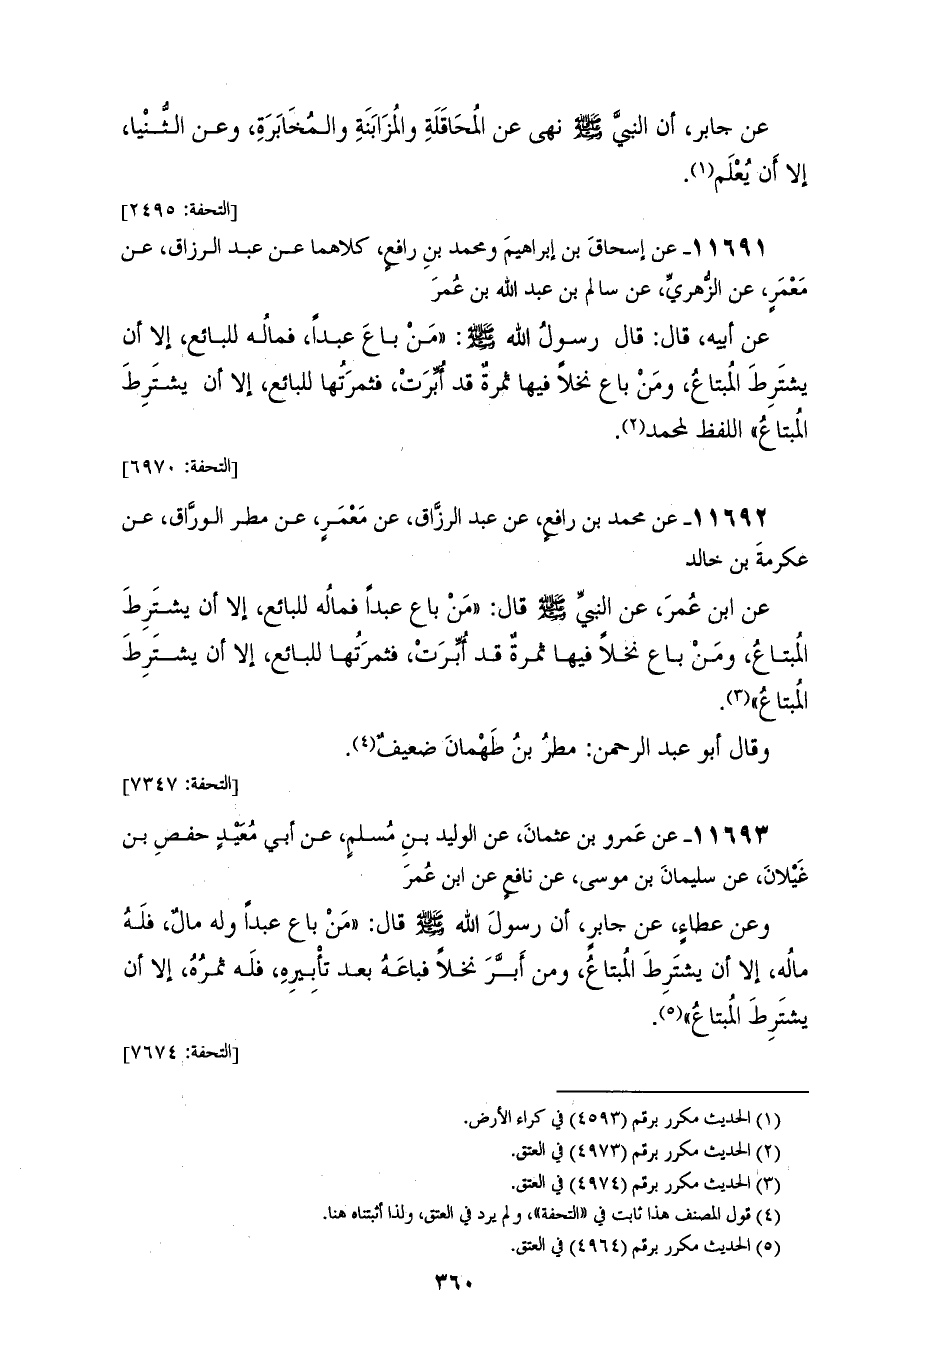 عن جابر، أن النبيَّ ﷺ نهى عن المُحَاقَلَةِ والمُزَابَنَةِ والـمُخَابَرَةِ، وعـن الثُّـنْيا،
إلا أَن يُعْلَم(١).
[التحفة: ٢٤٩٥]
١١٦٩١ـ عن إسحاقَ بن إبراهيمَ ومحمد بنِ رافعٍ، كلاهما عـن عبـد الـرزاق، عـن
مَعْمَرٍ، عن الزُّهريِّ، عن سالم بن عبد الله بن عُمرَ
عن أبيه، قال: قال رسولُ الله ﷺ: «مَـنْ بـاعَ عبـداً، فمالُـه للبـائع، إلا أن
يشتَرِطَ المُبتاعُ، ومَنْ باع نخلاً فيها ثمرةٌ قد أُبِّرَتْ، فثمرَتُها للبائع، إلا أن يشـتَرِطَ
المُبتاعُ» اللفظ لمحمد(٢).
[التحفة: ٦٩٧٠]
١١٦٩٢ـ عن محمد بن رافعٍ، عن عبد الرزَّاق، عن مَعْمَـرٍ، عـن مطـر الـورَّاق، عـن
عكرمةَ بن خالد
عن ابن عُمرَ، عن النبيِّ ﷺ قال: «مَنْ باع عبداً فمالُه للبائع، إلا أن يشـتَرِطَ
المُبتـاعُ، ومَـنْ بـاع نخـلاً فيهـا ثمـرةٌ قـد أُبِّـرَتْ، فثمرَتُهـا للبـائع، إلا أن يشـتَرِطَ
المُبتاعُ»(٣).
وقال أبو عبد الرحمن: مطرُ بنُ طَهْمانَ ضعيفٌ(٤).
[التحفة: ٧٣٤٧]
١١٦٩٣ـ عن عَمرو بن عثمانَ، عن الوليد بـنِ مُسـلمٍ، عـن أبـي مُعَيْـدٍ حفـصِ بـن
غَيْلانَ، عن سليمانَ بن موسى، عن نافعٍ عن ابن عُمرَ
وعن عطاءٍ، عن جابرٍ، أن رسولَ الله ﷺ قال: «مَنْ باع عبداً وله مالٌ، فلَـهُ
مالُه، إلا أن يشتَرِطَ المُبتاعُ، ومن أَبـَّرَ نخـلاً فباعَـهُ بعـد تأْبـيرِهِ، فلَـه ثمـرُهُ، إلا أن
يشتَرِطَ المُبتاعُ»(٥).
[التحفة: ٧٦٧٤]
(١) الحديث مكرر برقم (٤٥٩٣) في كراء الأرض.
(٢) الحديث مكرر برقم (٤٩٧٣) في العتق.
(٣) الحديث مكرر برقم (٤٩٧٤) في العتق.
(٤) قول المصنف هذا ثابت في «التحفة»، و لم يرد في العتق، ولذا أثبتناه هنا.
(٥) الحديث مكرر برقم (٤٩٦٤) في العتق.
٣٦٠